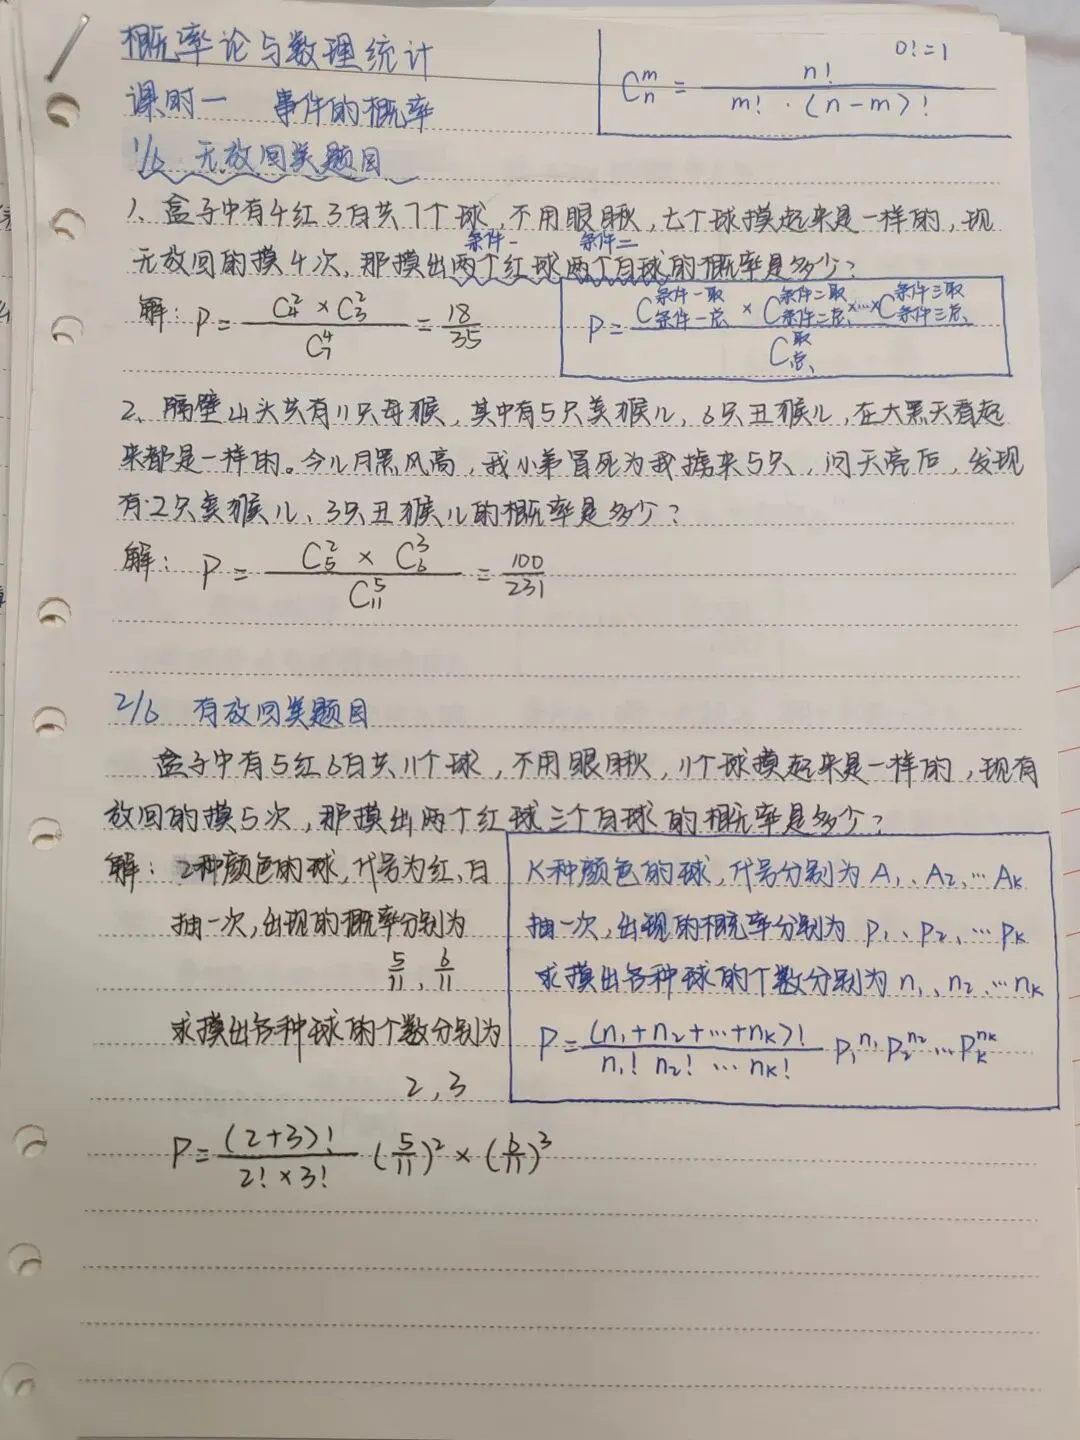 概率论与数理统计
0!=1
C_n^m = n! / m!·(n-m)!
课时一 事件的概率
1/6 无放回类题目
1、盒子中有4红3白共7个球,不用眼瞅,七个球摸起来是一样的,现
条件一 条件二
无放回的摸4次,那摸出两个红球两个白球的概率是多少?
解: P = C_4^2 × C_3^2 / C_7^4 = 18/35
P = C_条件一总^条件一取 × C_条件二总^条件二取 ×…× C_条件三总^条件三取 / C_总^取
2、隔壁山头共有11只母猴,其中有5只美猴儿,6只丑猴儿,在大黑天看起
来都是一样的。今儿月黑风高,我小弟冒死为我掳来5只,问天亮后,发现
有2只美猴儿、3只丑猴儿的概率是多少?
解: P = C_5^2 × C_6^3 / C_11^5 = 100/231
2/6 有放回类题目
盒子中有5红6白共11个球,不用眼瞅,11个球摸起来是一样的,现有
放回的摸5次,那摸出两个红球三个白球的概率是多少?
解: 2种颜色的球,代号为红、白
抽一次,出现的概率分别为
5/11, 6/11
求摸出各种球的个数分别为
2,3
P = (2+3)! / 2!×3! (5/11)^2 × (6/11)^3
K种颜色的球,代号分别为A_1、A_2、…A_K
抽一次,出现的概率分别为 P_1、P_2、…P_K
求摸出各种球的个数分别为n_1、n_2、…n_K
P = (n_1+n_2+…+n_K)! / n_1! n_2! … n_K! P_1^n_1 P_2^n_2 … P_K^n_K